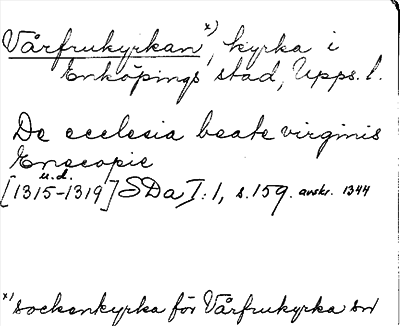 Vårfrukyrkan x), kyrka i
Enköpings stad, Upps. l.
De ecclesia beate virginis
Enecopie
u.d.
[1315-1319] SDa I:1, s. 159. avskr. 1344
x) sockenkyrka för Vårfrukyrka sn